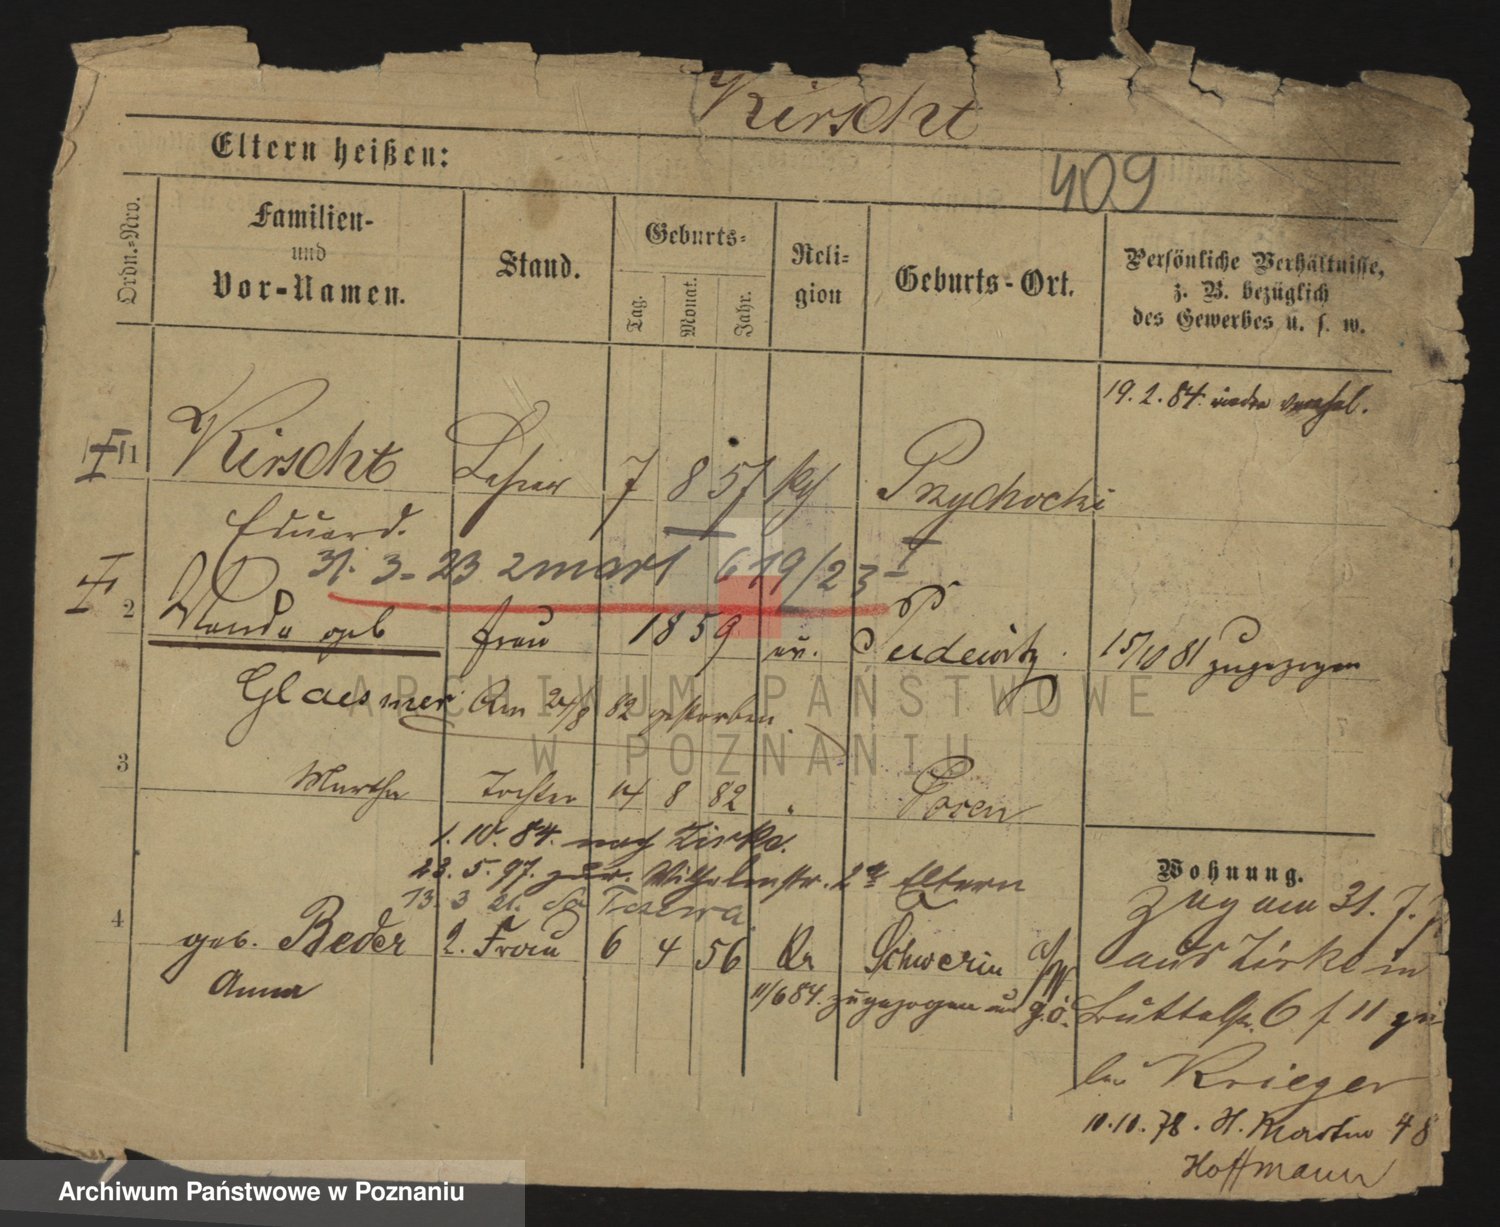 Kirscht
Eltern heißen:
409
Ordn.-Nro.
Familien-
und
Vor-Namen.
Stand.
Geburts-
Tag.
Monat.
Jahr.
Reli-
gion
Geburts-Ort.
Persönliche Verhältnisse,
z. B. bezüglich
des Gewerbes u. s. w.
19. 2. 84.
1 Kirscht Lehrer 7 8 57 Przychocki
Eduard.
31. 3. 23 zmarł 619/23
2 Wanda geb Frau 1859 ev. Pudewitz. 15/10 81 zugezogen
Glaesmer Am 24/8 82 gestorben.
ARCHIWUM PAŃSTWOWE
W POZNANIU
3 Martha Tochter 14 8 82 " Posen
1. 10. 84. nach Zirke.
23. 5. 97. zur. Wilhelmstr. 2 Eltern
13. 3 21.
Wohnung.
Zug am 31. 7.
4 geb. Beder 2. Frau 6 4 56 Schwerin a/W
aus Zirke in
Anna
11/6 84. zugezogen
Buttelstr. 6 f 11
bei Krieger
10. 10. 78. St. Martin 48
Hoffmann
Archiwum Państwowe w Poznaniu